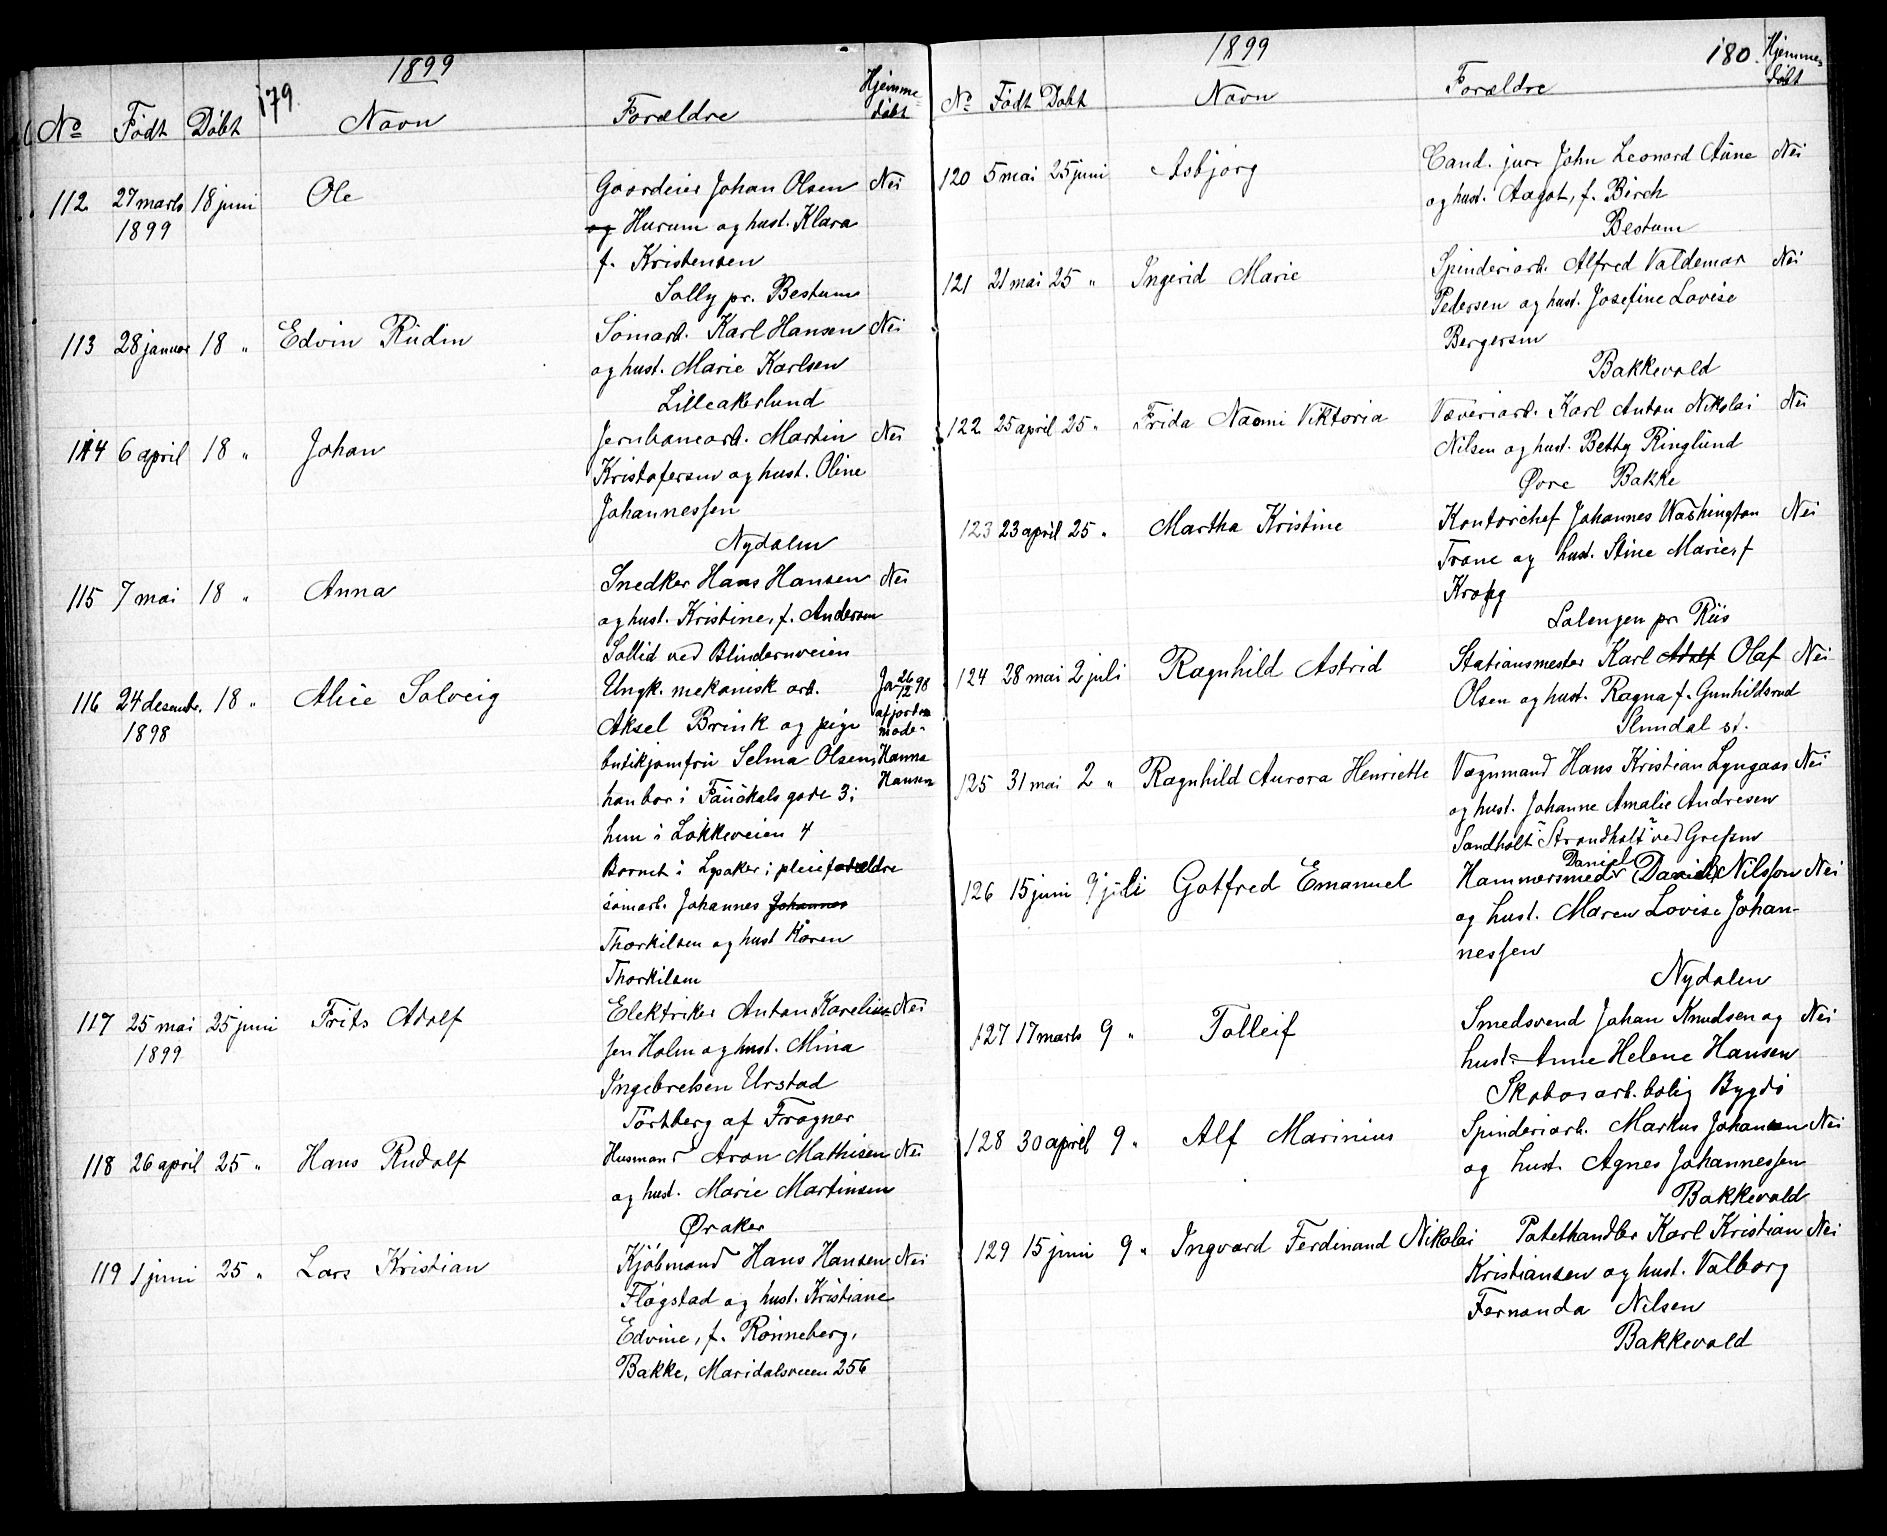 1899
179.
Hjemme-
døbt
No Født Döbt Navn Forældre
112 27 marts 18 juni Ole Gaardeier Johan Olsen Nei
1899 og Hurum og hust. Klara
f. Kristensen
Solly pr. Bestum
113 28 januar 18 " Edvin Rudin Sömarb. Karl Hansen Nei
og hust. Marie Karlsen
Lilleakerlund
114 6 april 18 " Johan Jernbanearb. Martin Nei
Kristofersen og hust. Oline
Johannessen
Nydalen
115 7 mai 18 " Anna Snedker Hans Hansen Nei
og hust. Kristine, f. Andersen
Sollid ved Blindernveien
116 24 desembr. 18 " Alice Solveig Ungk. mekanisk arb. Ja 26/12 98
1898 Aksel Brink og pige af jorde-
mode-
butikjomfru Selma Olsen, Hanna
Hansen
han bor i Fauchals gade 3;
hun i Lökkeveien 4
Barnet i Lysaker i pleieforældre
sömarb. Johannes Johannes
Thorkilsen og hust Karen
Thorkilsen
117 25 mai 25 juni Frits Adolf Elektriker Anton Karelius- Nei
1899 sen Holm og hust. Mina
Ingebretsen Urstad
Törtberg af Frogner
118 26 april 25 " Hans Rudolf Husmand Aron Mathisen Nei
og hust. Marie Martinsen
Øraker
119 1 juni 25 " Lars Kristian Kjöbmand Hans Hansen Nei
Flögstad og hust. Kristiane
Edvine, f. Rönneberg,
Bakke, Maridalsveien 256
1899
180
Hjemme-
döbt
No Födt Döbt Navn Forældre
120 5 mai 25 juni Asbjörg Cand. jur. John Leonard Aune Nei
og hust. Aagot, f. Birch
Bestum
121 21 mai 25 " Ingerid Marie Spinderiarb. Alfred Valdemar Nei
Pedersen og hust. Josefine Lovise
Bergersen
Bakkevold
122 25 april 25 " Frida Naomi Viktoria Væveriarb. Karl Anton Nikolai Nei
Nilsen og hust. Betty Ringlund
Øvre Bakke
123 23 april 25 " Martha Kristine Kontorchef Johannes Washington Nei
Trane og hust. Stine Marie, f
Kropg
Lalengen pr. Riis
124 28 mai 2 juli Ragnhild Astrid Stationsmester Karl Adolf Olaf Nei
Olsen og hust. Ragna f. Gunhildsrud
st.
125 31 mai 2 " Ragnhild Aurora Henriette Vognmand Hans Kristian Lyngaas Nei
og hust. Johanne Amalie Andresen
Sandholt "Strandholt" ved Grefsen
Daniel
126 15 juni 9 juli Gotfred Emanuel Hammersmed Daniel Nilsson Nei
og hust. Maren Lovise Johan-
nessen
Nydalen
127 17 marts 9 " Tolleif Smedsvend Johan Knudsen og Nei
hust. Anne Helene Hansen
Skabos arb. bolig Bygdö
128 30 april 9 " Alf Marinius Spinderiarb. Markus Johansen Nei
og hust. Agnes Johannessen
Bakkevold
129 15 juni 9 " Ingvard Ferdinand Nikolai Potethandler Karl Kristian Nei
Kristiansen og hust. Valborg
Fernanda Nilsen
Bakkevold